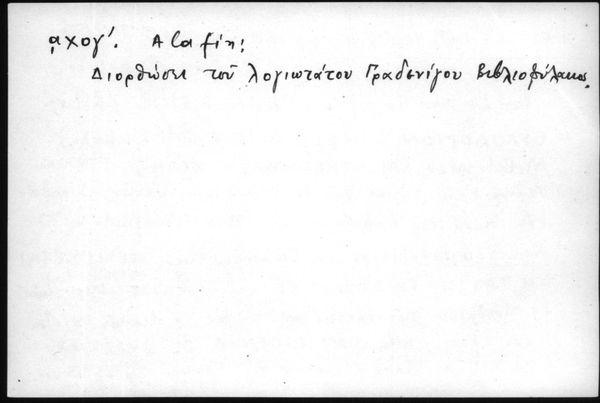 ͵αχογʹ. A la fin:
Διορθώσει τοῦ λογιωτάτου Γραδενίγου Βιβλιοφύλακος.